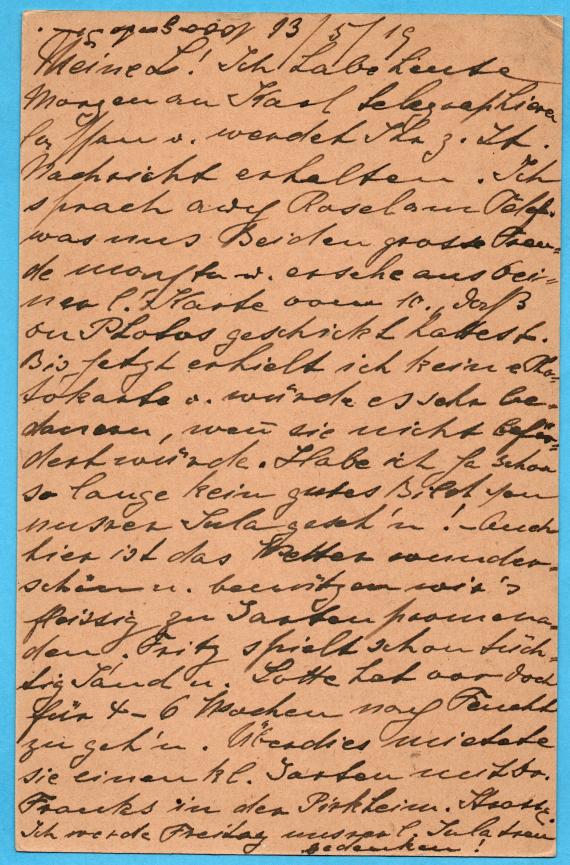 13/5/19
Meine L.! Ich habe heute
Morgen an Karl telegraphieren
lassen u. werdet Ihr z. Zt.
Nachricht erhalten. Ich
sprach Rosel am
was uns Beiden grosse Freu-
de machte u. ersehe aus Dei-
ner l. Karte vom 10., daß
du Photos geschickt hattest.
Bis jetzt erhielt ich keine Pho-
tokarte u. würde es sehr be-
dauern, wenn sie nicht beför-
dert würde. Habe ich ja schon
so lange kein gutes Bild von
unsrer Jula geseh'n! - Auch
hier ist das Wetter wunder-
schön u. benützen wir's
fleissig zu Gartenpromena-
den. Fritz spielt schon tüch-
tig Sand u. Lotte hat vor doch
für 4-6 Wochen nach Feucht
zu geh'n. Überdies mietete
sie einen kl. Garten mit Dr.
Franks in der Pirkheim. Strasse.
Ich werde Freitag unsrer l. Jula treu
gedenken!